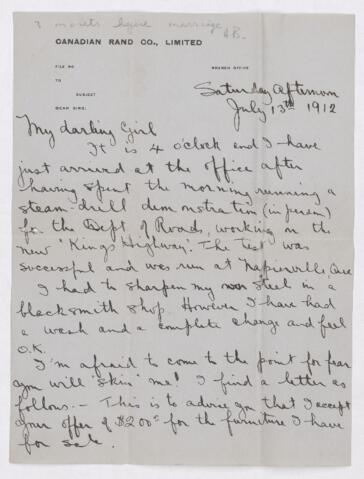 3 months before marriage
A.B.
CANADIAN RAND CO., LIMITED
FILE NO
BRANCH OFFICE
TO
SUBJECT
DEAR SIRS:
Saturday Afternoon
July 13th 1912
My darling Girl
It is 4 o'clock and I have
just arrived at the office after
having spent the morning running a
steam-drill demonstration (in person)
for the Dept of Roads, working on the
new "King's Highway." The test was
successful and was run at Napierville Que
I had to sharpen my own steel in a
blacksmith shop. However I have had
a wash and a complete change and feel
O.K.
I'm afraid to come to the point for fear
you will "skin" me! I find a letter as
follows. — This is to advise you that I accept
your offer of $200 for the furniture I have
for sale.